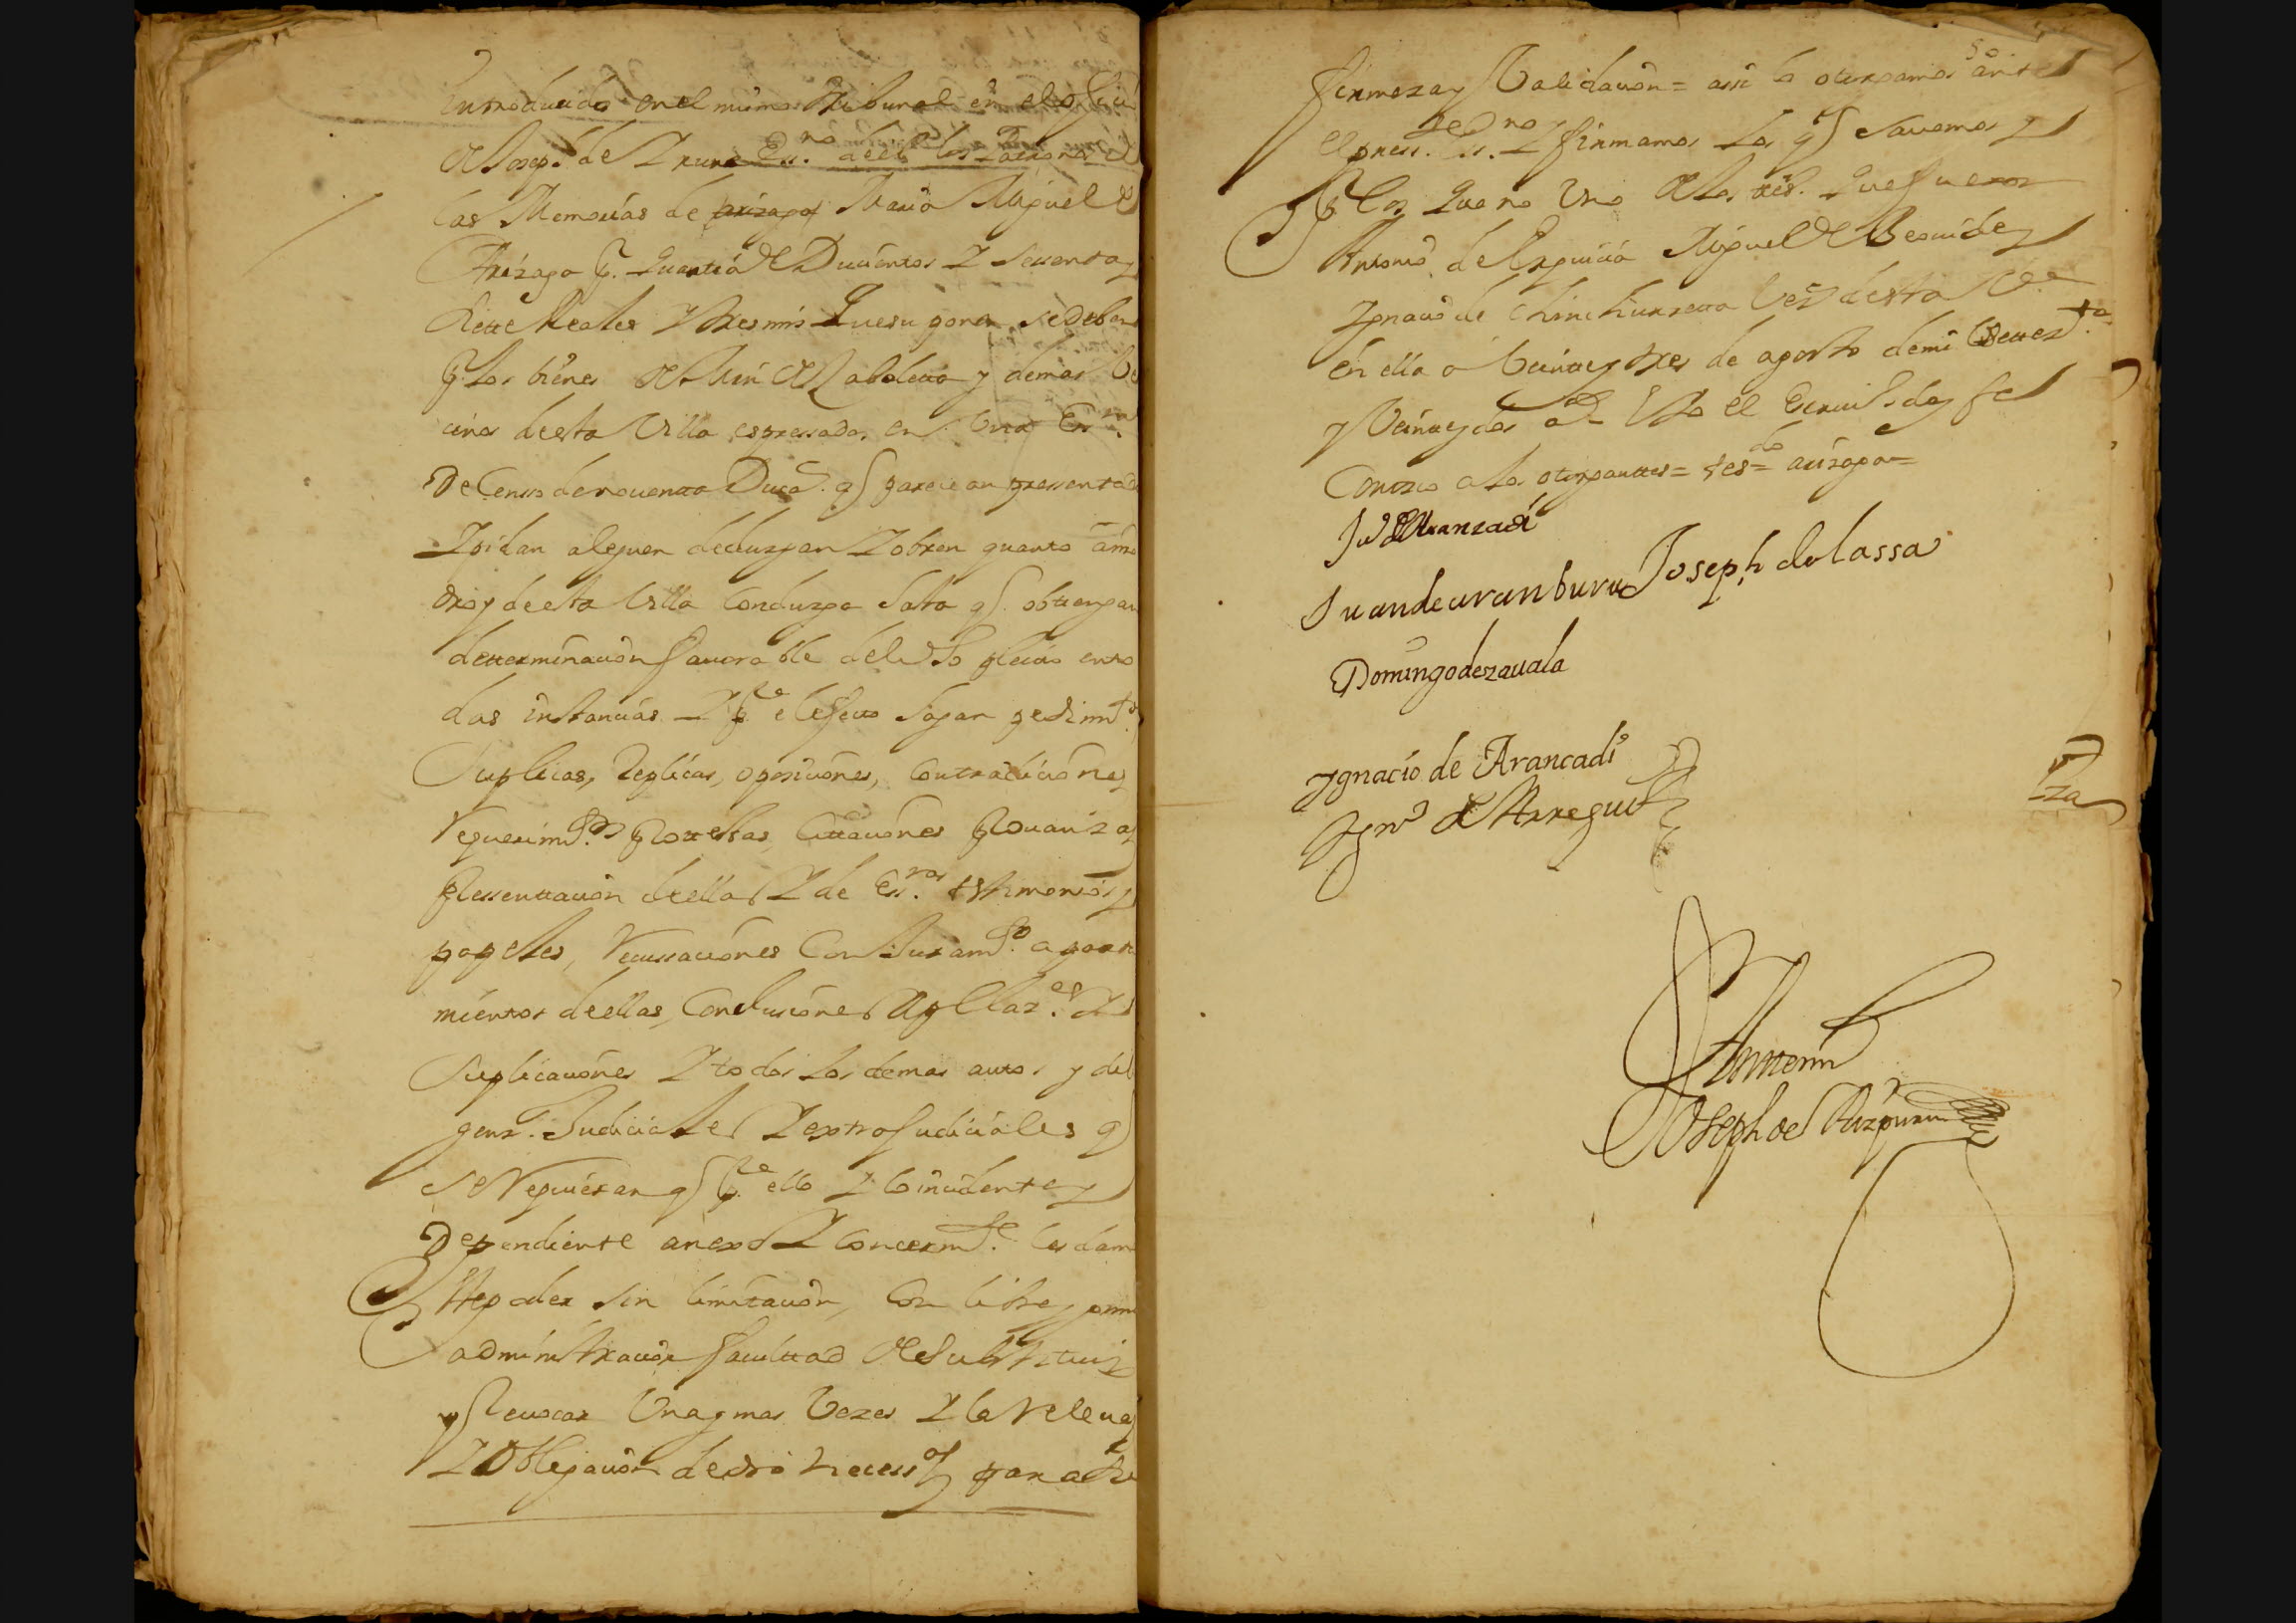 Introducido en el mismo tribunal en el ofiçio
de Joseph de Yrure Ess.no de el los Patronos de
las Memorias de arizaga Maria Miguel de
Arizaga p.r quantia de Ducientos y settenta y
siette Reales y tres mrs que suponen se deben
p.r los bienes de Mrn de Zabaleta y demas ve
cinos de esta Villa espresados en una Ess.ra
De Censo de noventa Duca.s q parecieran pressentados
Y pidan aleguen deduzgan y obren quanto a nro
dro y de esta Villa Conduzga hasta q obtengan
determinacion favorable del dho pleito en to
das instancias y p.a el efecto hagan pedimt.os
Suplicas, Replicas, oposiciones, Contradiciones
Requerimt.os Prottestas, Cittaciones Provanzas
Pressenttacion de ellas y de Ess.ras testimonios y
papeles, Recussaciones Con Juramt.o apartta
mientos de ellas, Conclusiones Appellaz.es y
Suplicaciones y todos los demas autos y dili
genz.s Judiciales y extrajudiciales q
se Requieran q p.a ello y lo incidente y
Dependiente anexo y Concernt.e les damos
este poder sin limitacion, Con libre y
administracion facultad de substituir
y Revocar Una y mas Vezes y la Releva
y Obligacion de dro necess.a para su
firmeza y Validacion = assi lo otorgamos ante
el press.te Ess.no y firmamos los q savemos y
p.r los que no Uno de los tes.s que fueron
Antonio de Miguel de Beovide y
Ygnacio de Chinchurreta Vez.s desta V.a
en ella a Veinte y tres de agosto de mil Settez.tos
y Veinte y dos a.s y yo el Escriv.o doy fee
Conozco a los otorgantes = tes.do = arizaga =
Ju.o de Aranzadi
Juan de aranburu Joseph de lassa
Domingo de zauala
Ygnacio de Arancadi
Ygn.o de Arregui
Antemi
Joseph de Aizpuru